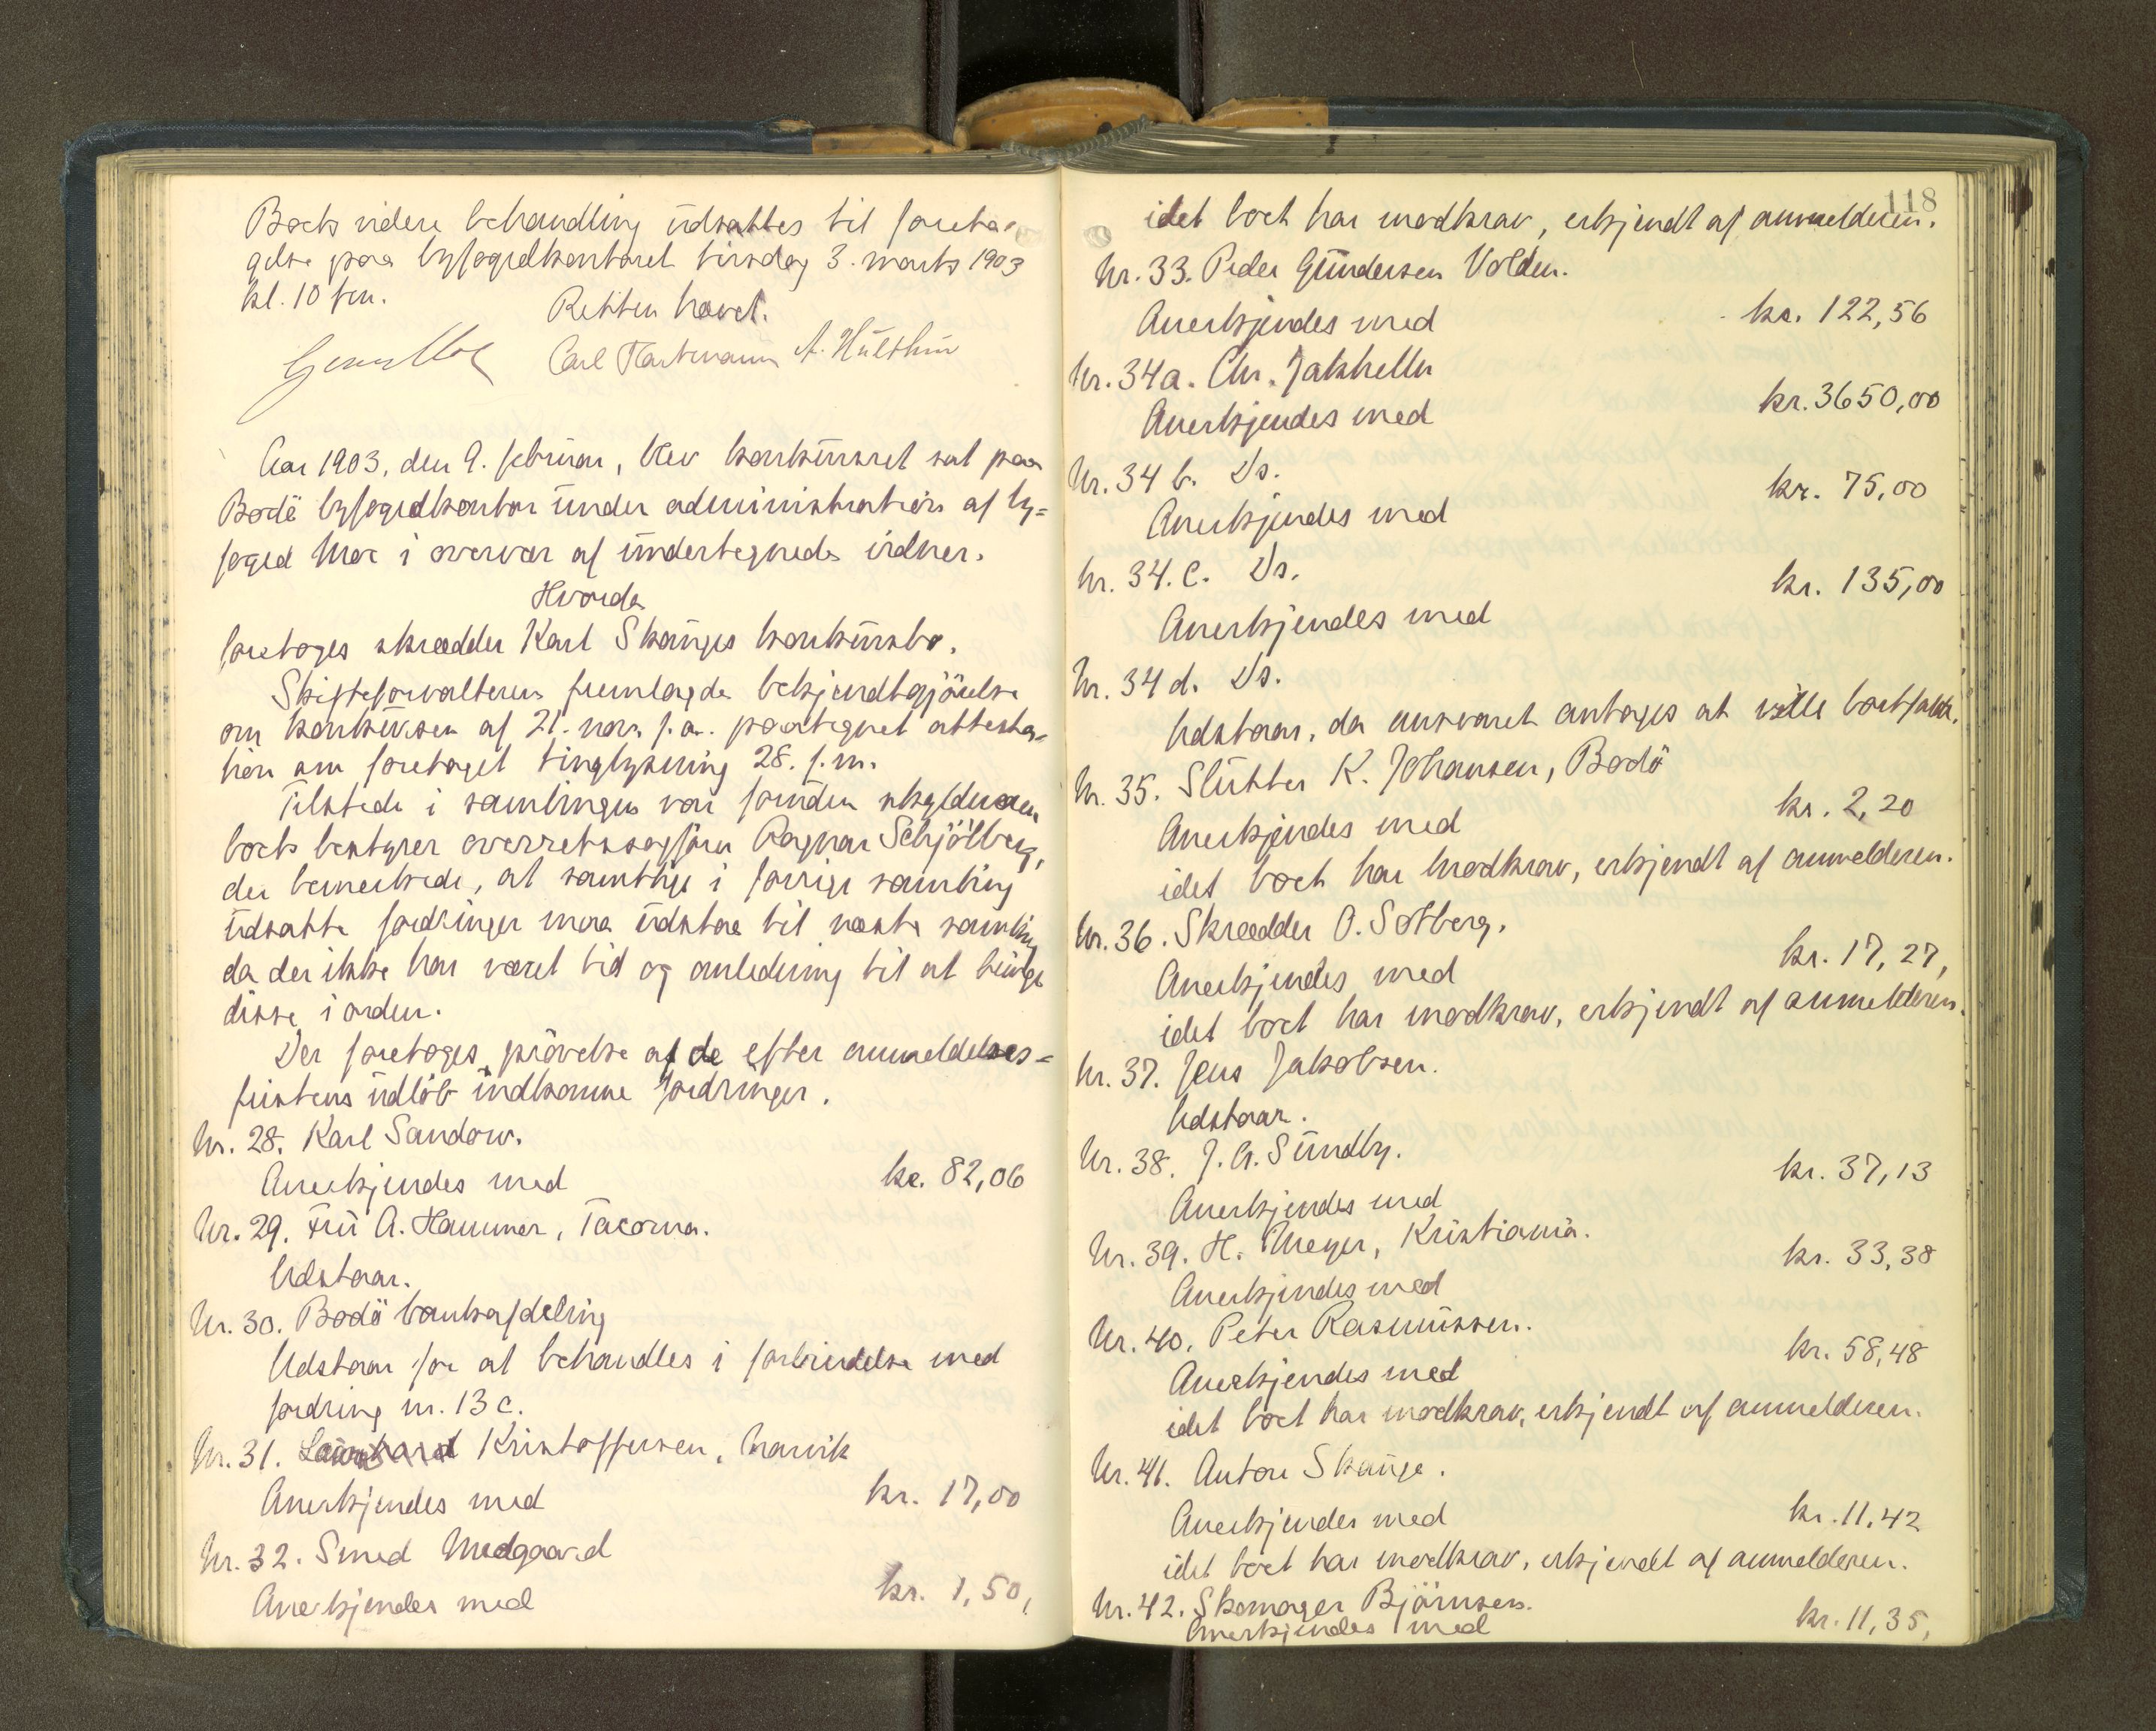 Boets videre behandling udsattes til foreta-
gelse paa byfogedkontoret tirsdag 3. marts 1903
kl. 10 fm.
Retten hævet.
Carl Hartmann A. Hulthin
Aar 1903, den 9. februar, blev konkursret sat paa
Bodö byfogedkontor under administration af by=
foged Moe i overvær af undertegnede vidner.
Hvorda
foretoges skrædder Karl Skauges konkursbo.
Skifteforvalteren fremlagde bekjendtgjörelse
om konkursen af 21. nov. f. a. paategnet attesta=
tion om foretaget tinglysning 28. s. m.
Tilstede i samlingen var foruden skyldneren
boets bestyrer overretssagförer Ragnar Schjölberg,
der bemerkede, at samtlige i forrige samling
udsatte fordringer maa udstaa til næste samling
da der ikke har været tid og anledning til at bringe
disse i orden.
Der foretoges prövelse af de efter anmeldelses=
fristens udlöb indkomne fordringer.
Nr. 28. Karl Sandow.
Anerkjendes med kr. 82,06
Nr. 29. Fru A. Hammer, Tacoma.
Udstaar.
Nr. 30. Bodö bankafdeling
Udstaar for at behandles i forbindelse med
fordring nr. 13 c.
Nr. 31. Kristoffersen, Narvik
Anerkjendes med kr. 17,00
Nr. 32. Smed Medgaard
Anerkjendes med kr. 1,50,
118
idet boet har modkrav, erkjendt af anmelderen.
Nr. 33. Peder Gundersen Volden.
Anerkjendes med kr. 122,56
Nr. 34a. Chr. Jakhelln
Anerkjendes med kr. 3650,00
Nr. 34 b. Ds.
Anerkjendes med kr. 75,00
Nr. 34. c. Ds.
Anerkjendes med kr. 135,00
Nr. 34 d. Ds.
Udstaar, da ansvaret antages at ville bortfalde.
Nr. 35. Slutter K. Johansen, Bodö
Anerkjendes med kr. 2,20
idet boet har modkrav, erkjendt af anmelderen.
Nr. 36. Skrædder O. Solberg.
Anerkjendes med kr. 17,27,
idet boet har modkrav, erkjendt af anmelderen.
Nr. 37. Jens Jakobsen.
Udstaar.
Nr. 38. J. A. Sundby.
Anerkjendes med kr. 37,13
Nr. 39. H. Meyer, Kristiania.
Anerkjendes med kr. 33,38
Nr. 40. Peter Rasmussen.
Anerkjendes med kr. 58,48
idet boet har modkrav, erkjendt af anmelderen.
Nr. 41. Antore Skauge.
Anerkjendes med kr. 11,42
idet boet har modkrav, erkjendt af anmelderen.
Nr. 42. Skomager Björnsen.
Anerkjendes med kr. 11,35,